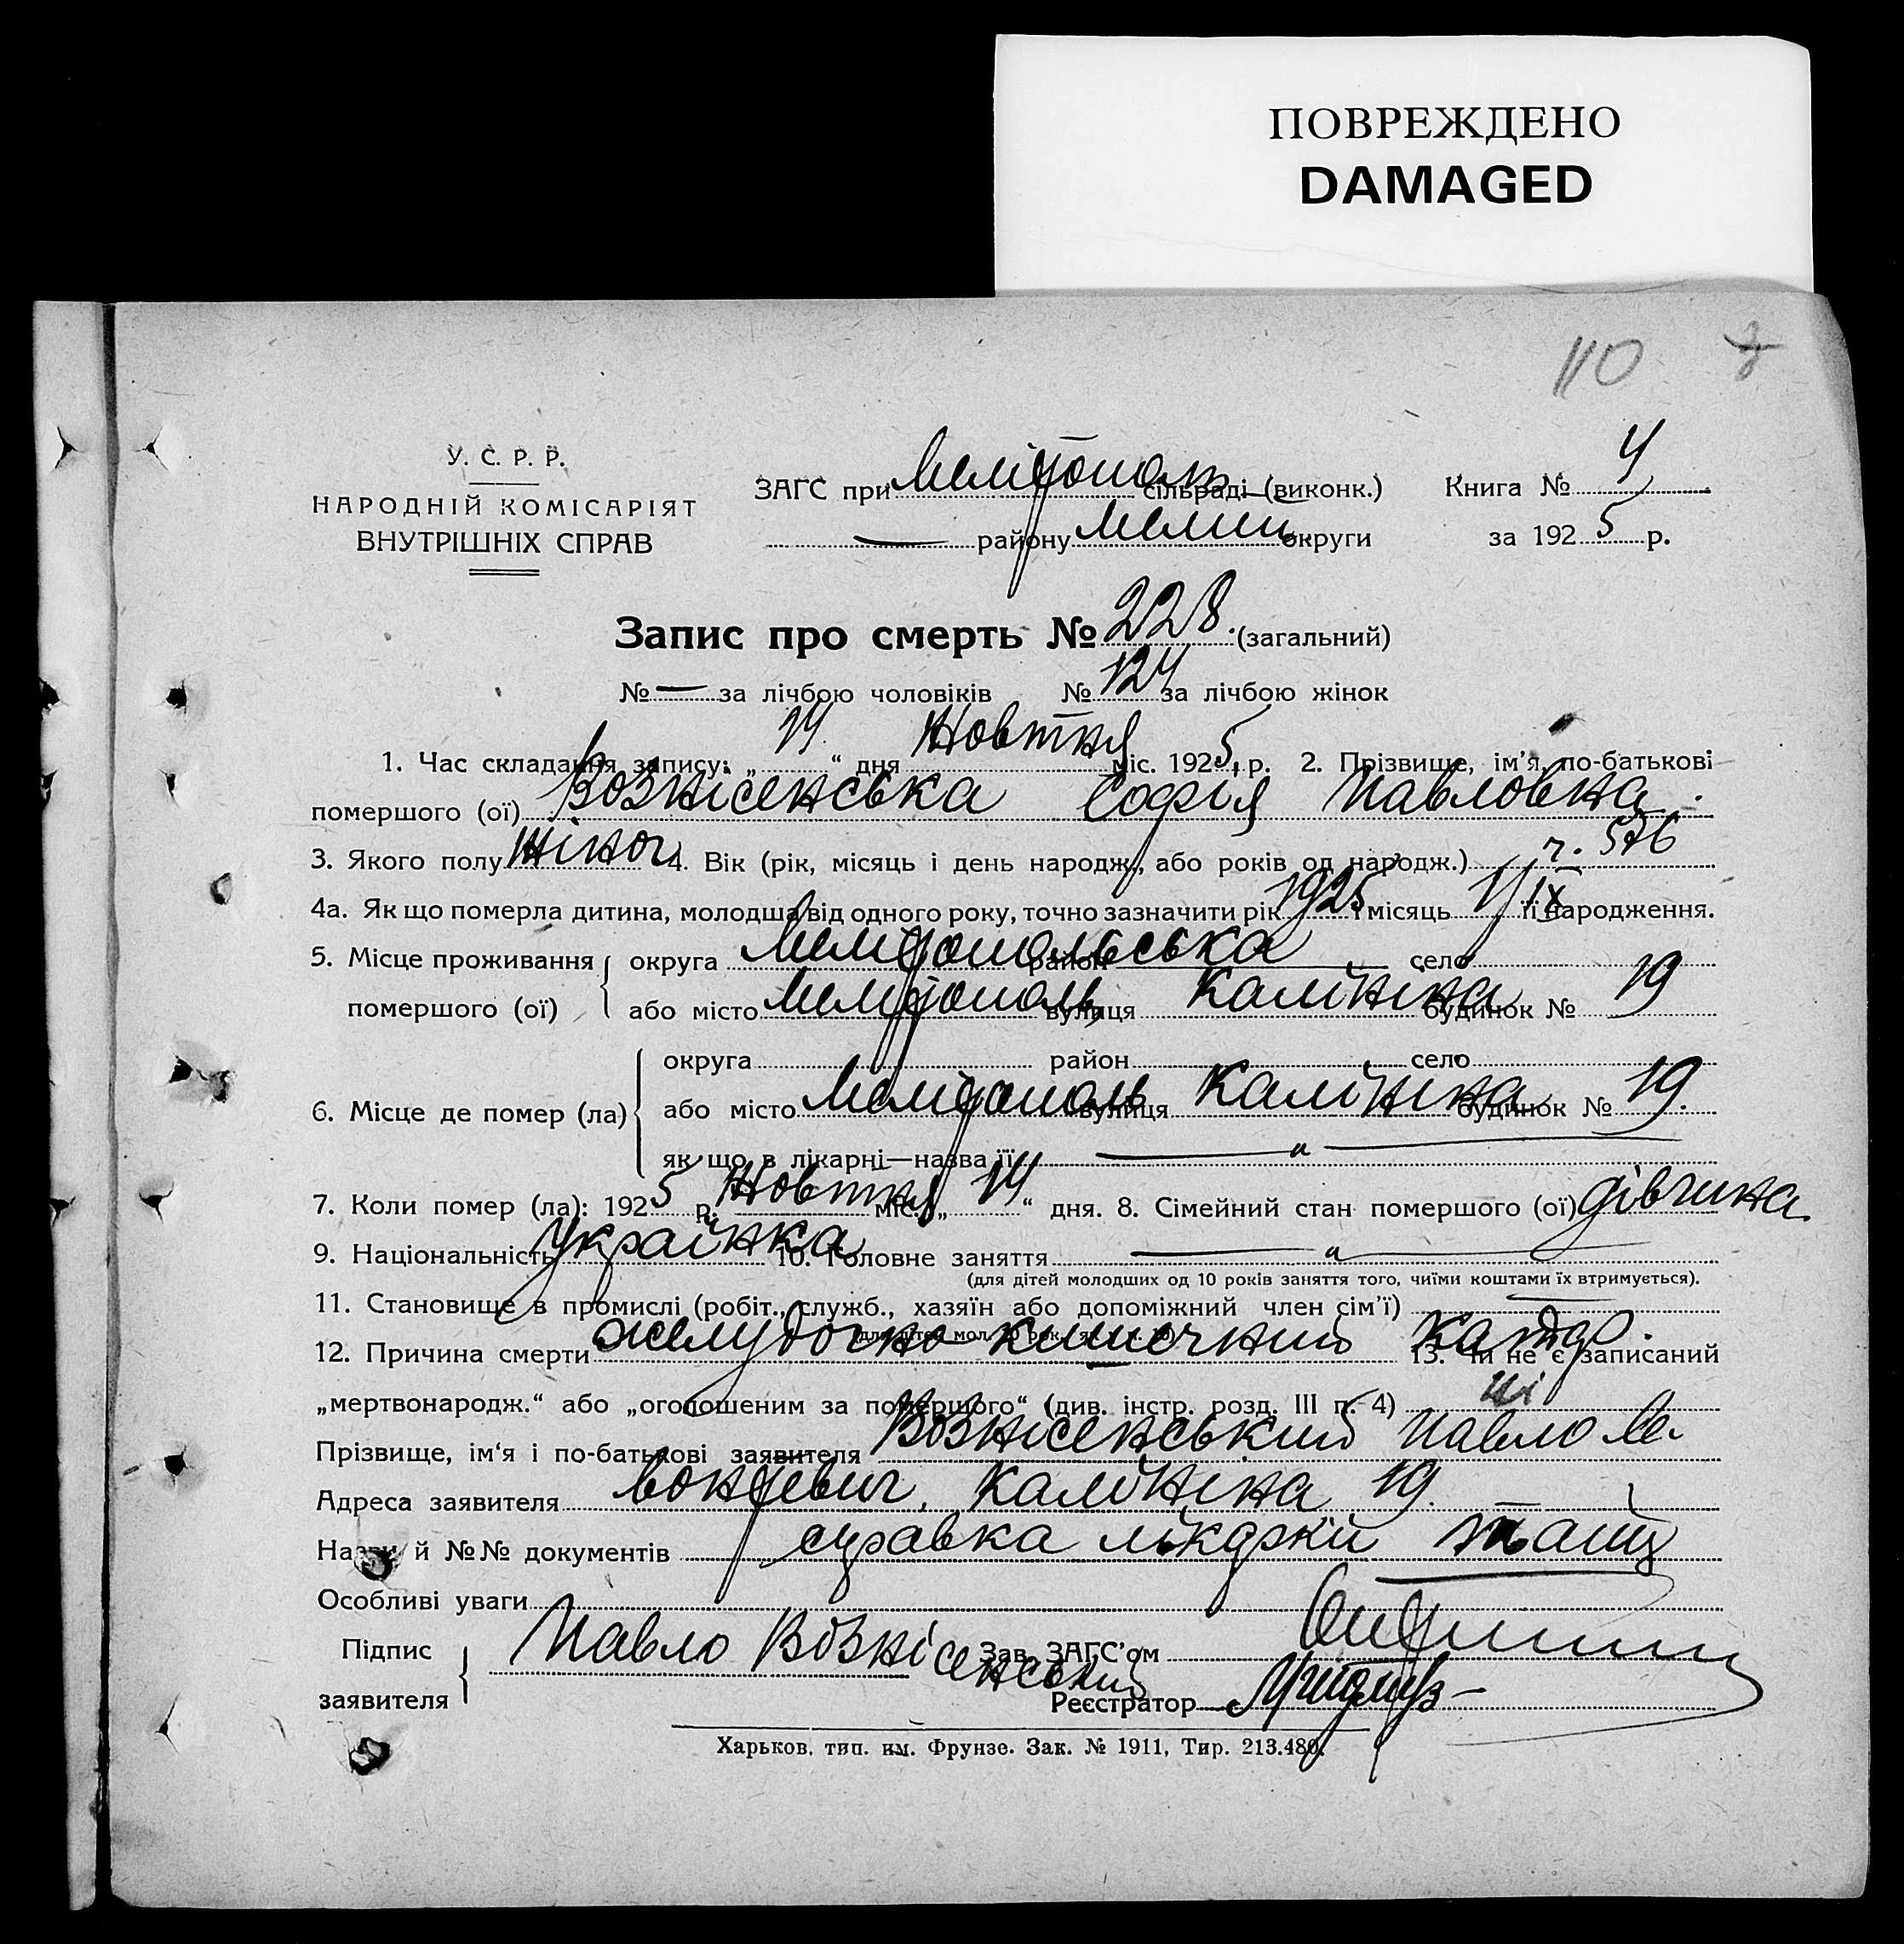 ПОВРЕЖДЕНО
DAMAGED
110
У. С. Р. Р.
НАРОДНІЙ КОМІСАРІЯТ
ВНУТРІШНІХ СПРАВ
ЗАГС при Мелітополь сільраді (виконк.)
— району Мелит. округи
Книга № 4
за 1925 р.
Запис про смерть № 228. (загальний)
№ — за лічбою чоловіків № 124 за лічбою жінок
1. Час складання запису: „ 14 “ дня Жовтня міс. 1925 р. 2. Прізвище, ім'я, по-батькові
помершого (ої) Вознісенська Софія Павловна.
3. Якого полу жіноч. 4. Вік (рік, місяць і день народж., або років од народж.)
4а. Як що померла дитина, молодша від одного року, точно зазначити рік 1925 і місяць IX її народження.
5. Місце проживання помершого (ої) округа Мелітопольська район — село
або місто Мелітополь вулиця Калініна будинок № 19
6. Місце де помер (ла) округа район село
або місто Мелітополь вулиця Калініна будинок № 19.
як що в лікарні—назва її — „ —
7. Коли помер (ла): 1925 р. Жовтня міс. „ 14 “ дня. 8. Сімейний стан помершого (ої) дівчина.
9. Національність Українка 10. Головне заняття — „ —
(для дітей молодших од 10 років заняття того, чиїми коштами їх втримується).
11. Становище в промислі (робіт., служб., хазяїн або допоміжний член сім'ї) —
(для дітей мол. 10 рок., як в п. 10)
12. Причина смерти желудочно-кишечний катар. 13. Чи не є записаний
„мертвонародж.“ або „оголошеним за помершого“ (див. інстр. розд. III п. 4) ні
Прізвище, ім'я і по-батькові заявителя Вознісенський Павло Ле-
Адреса заявителя вонтевич. Калініна 19.
Назви й №№ документів справка лікаря
Особливі уваги
Підпис заявителя Павло Вознісенський Зав. ЗАГС'ом
Реєстратор
Харьков, тип. им. Фрунзе. Зак. № 1911, Тир. 213.480.